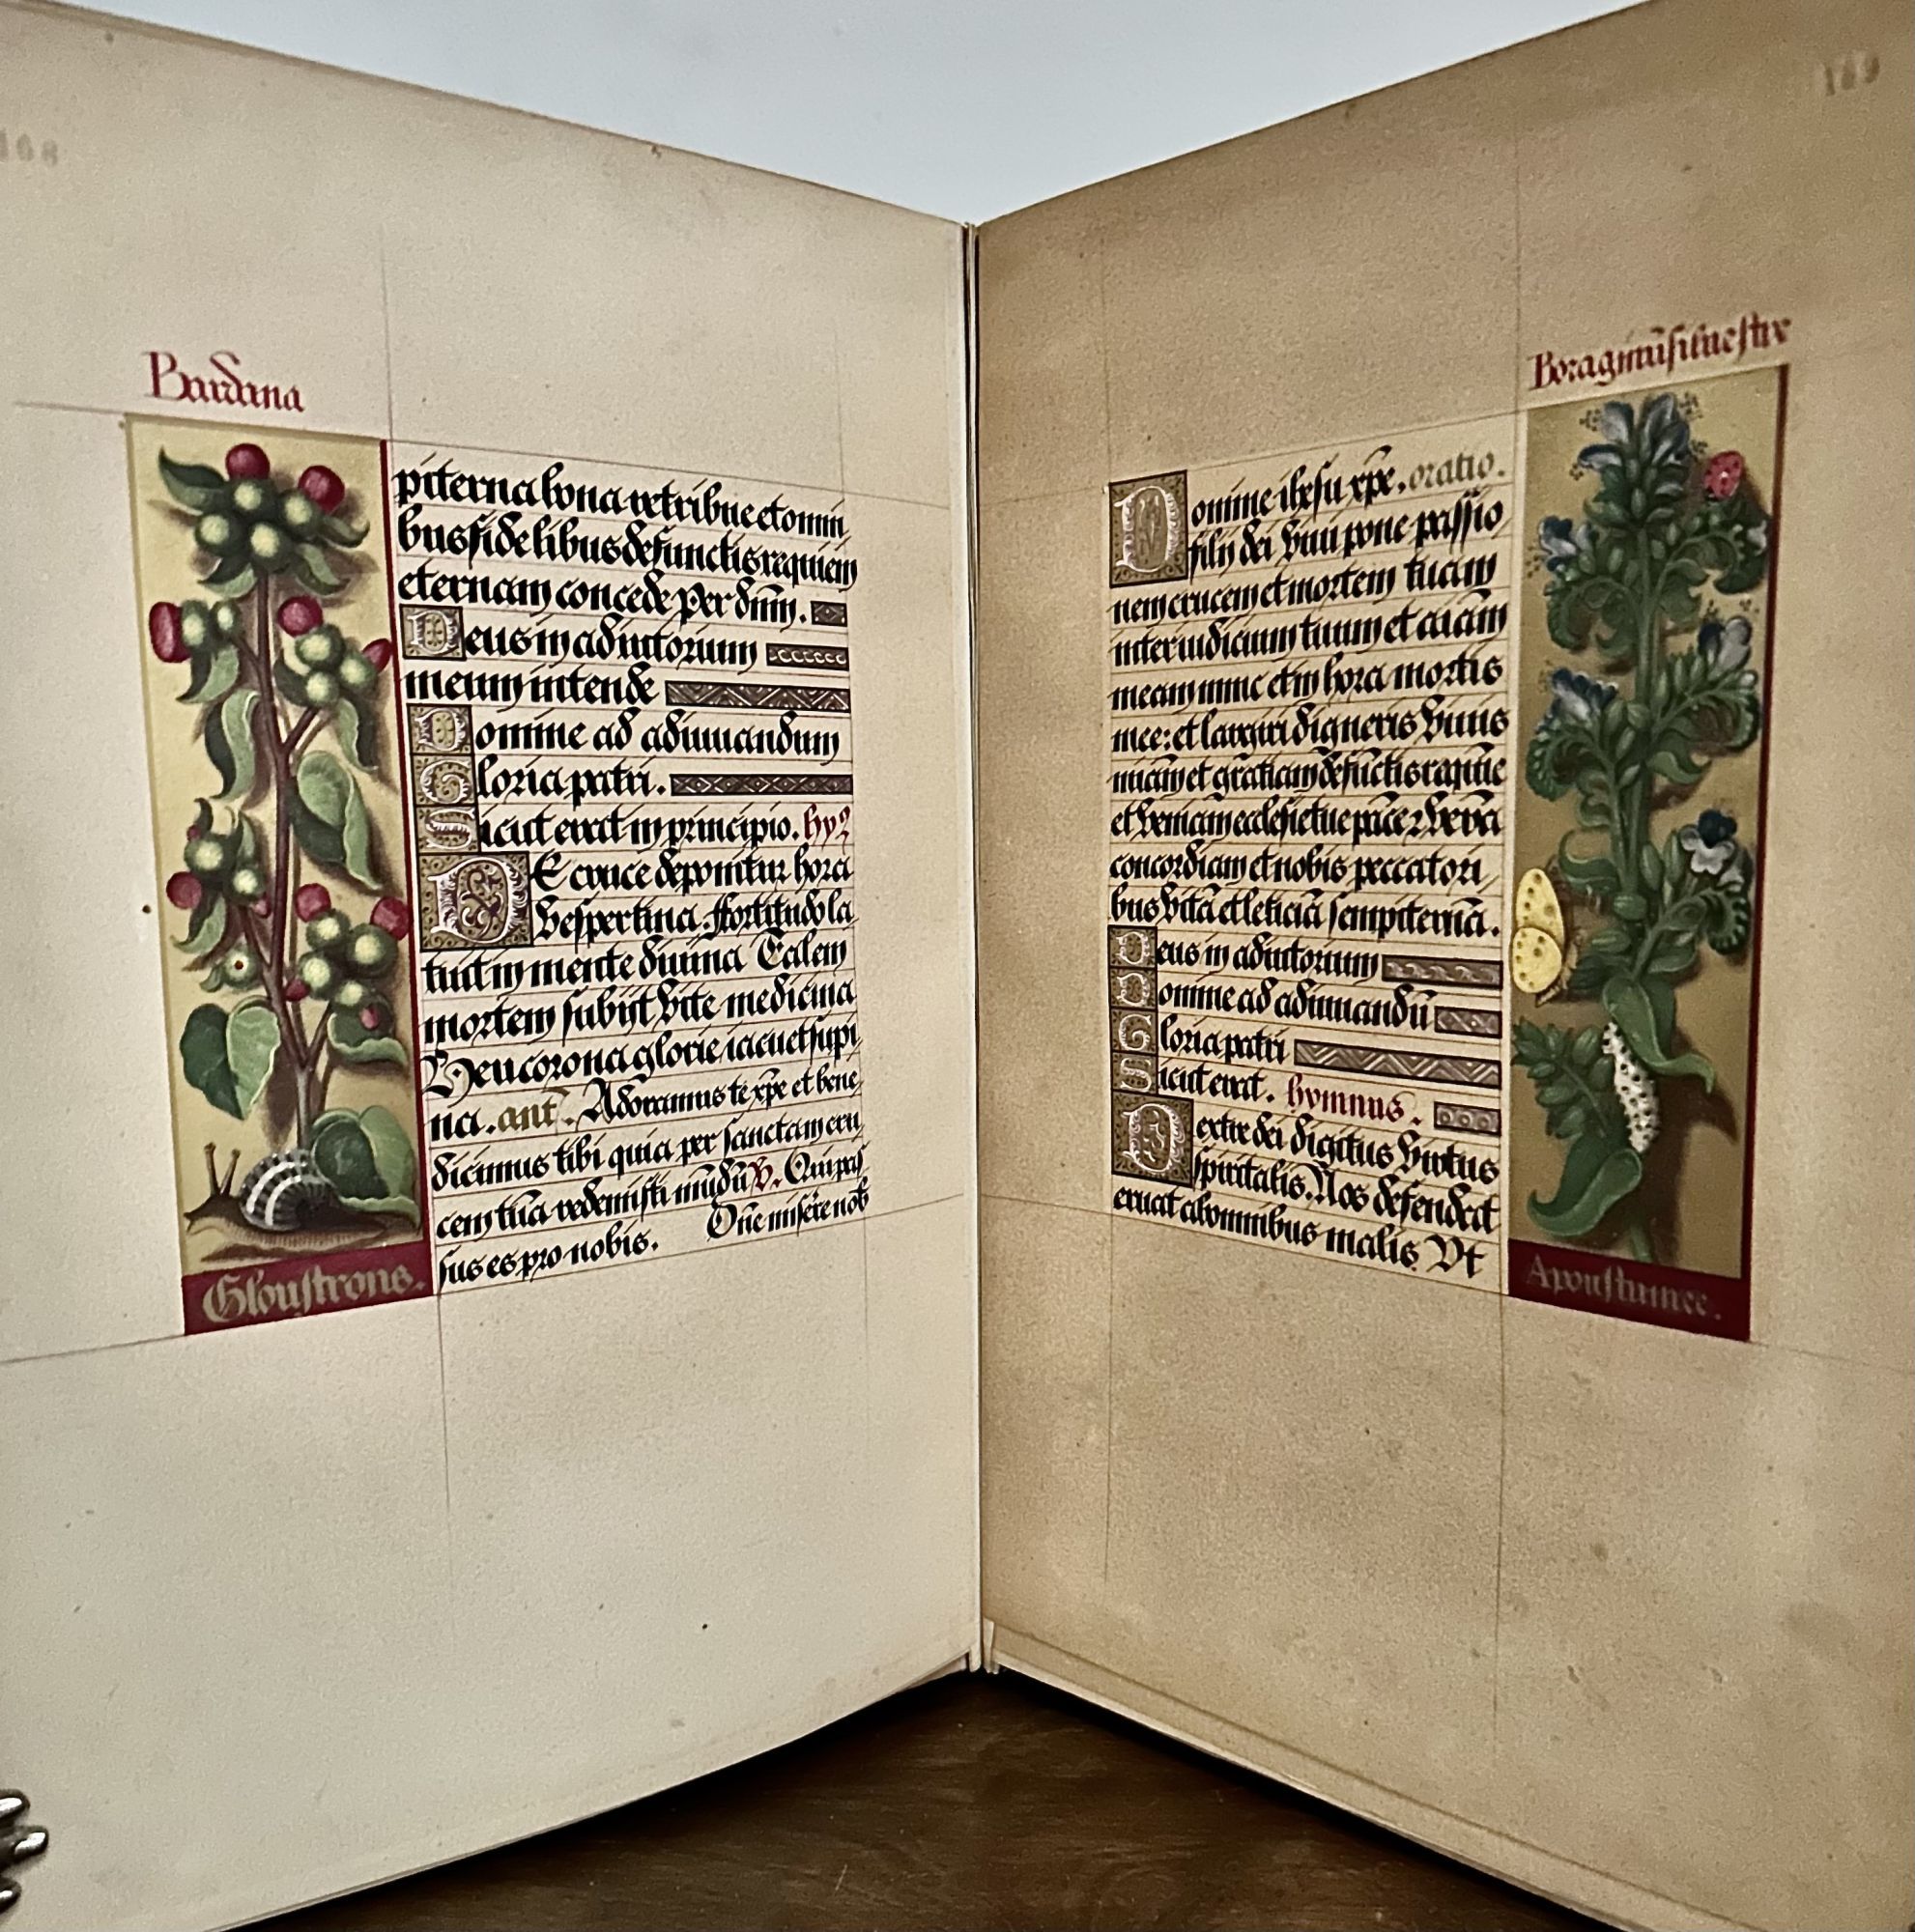 168
Bardana
piterna bona retribue et omni
bus fidelibus defunctis requiem
eternam concede per dn̄m.
Deus in adiutorium
meum intende
Domine ad adiuuandum
Gloria patri.
Sicut erat in principio. hy
DE cruce deponitur hora
vespertina. ffortitudo la
tuit in mente diuina Talem
mortem subijt vite medicina
Heu corona glorie iacuet supi
na. ant̄. Adoramus te xp̄e et bene
dicimus tibi quia per sanctam cru
cem tuā redemisti mūdū v. Qui pas
sus es pro nobis. Dn̄e misere nob̄
Gloustrons.
169
Boraginū siluestre
Domine ihesu xp̄e. oratio.
filij dei viui pone passio
nem crucem et mortem tuam
inter iudicium tuum et aīam
meam nunc et in hora mortis
mee: et largiri digneris viuis
mīam et gratiam defūctis requie
et veniam ecclesie tue pacē
concordiam et nobis peccatori
bus vitā et leticiā sempiternā.
Deus in adiutorium
Domine ad adiuuandū
Gloria patri
Sicut erat. hymnus.
Dextre dei digitus virtus
spiritalis. Nos defendat
eruat ab omnibus malis Vt
Apoustumee.